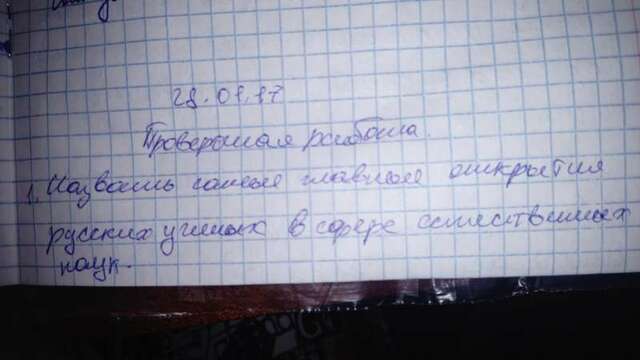 28.01.17
Проверочная работа.
1. Назвать самые главные открытие
русских ученых в сфере естественных
наук.